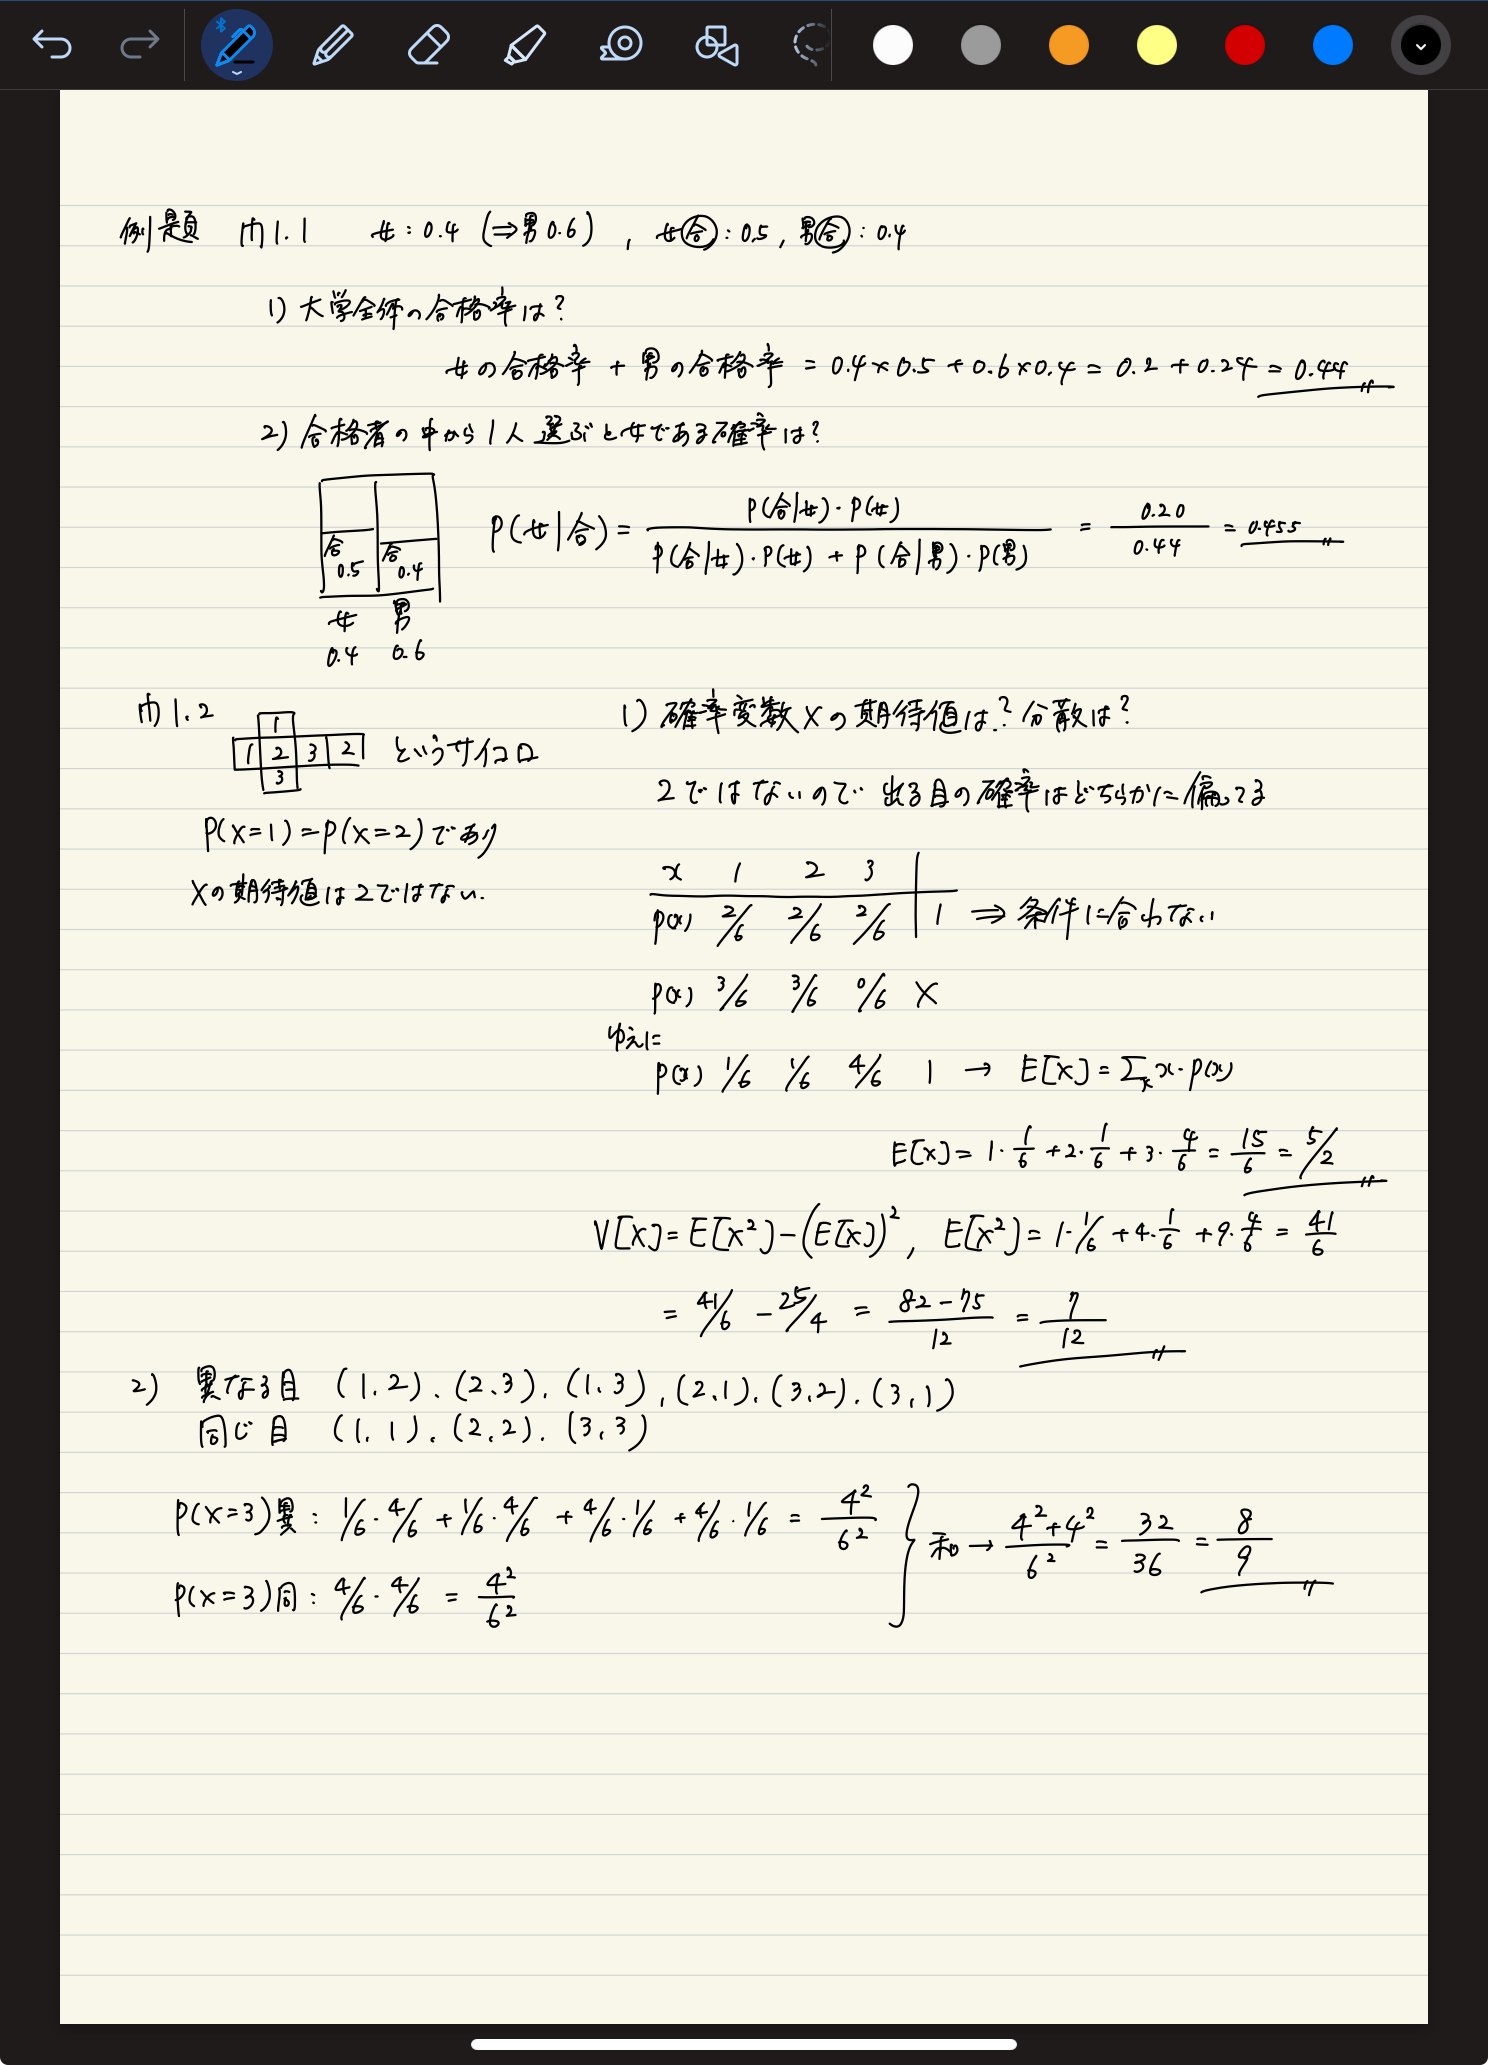 例題 問1.1 女:0.4 (⇒男0.6), 女㊝:0.5, 男㊝:0.4
1) 大学全体の合格率は?
女の合格率 + 男の合格率 = 0.4×0.5 + 0.6×0.4 = 0.2 + 0.24 = 0.44
2) 合格者の中から1人選ぶと女である確率は?
合 0.5 合 0.4
女 男
0.4 0.6
P(女|合) = P(合|女)・P(女) / P(合|女)・P(女) + P(合|男)・P(男) = 0.20 / 0.44 = 0.455
問1.2
1
1 2 3 2
3
というサイコロ
P(X=1)=P(X=2)であり
Xの期待値は2ではない.
1) 確率変数Xの期待値は?分散は?
2ではないので出る目の確率はどちらかに偏ってる
x 1 2 3
P(x) 2/6 2/6 2/6 1 ⇒ 条件に合わない
P(x) 3/6 3/6 0/6 X
ゆえに
P(x) 1/6 1/6 4/6 1 → E[X] = Σx x・P(x)
E[X] = 1・1/6 + 2・1/6 + 3・4/6 = 15/6 = 5/2
V[X] = E[X²] − (E[X])², E[X²] = 1・1/6 + 4・1/6 + 9・4/6 = 41/6
= 41/6 − 25/4 = 82−75 / 12 = 7/12
2) 異なる目 (1.2)、(2.3)、(1.3), (2.1)、(3.2)、(3,1)
同じ目 (1.1)、(2.2)、(3.3)
P(X=3)異: 1/6・4/6 + 1/6・4/6 + 4/6・1/6 + 4/6・1/6 = 4²/6²
P(X=3)同: 4/6・4/6 = 4²/6²
和 → 4²+4² / 6² = 32/36 = 8/9